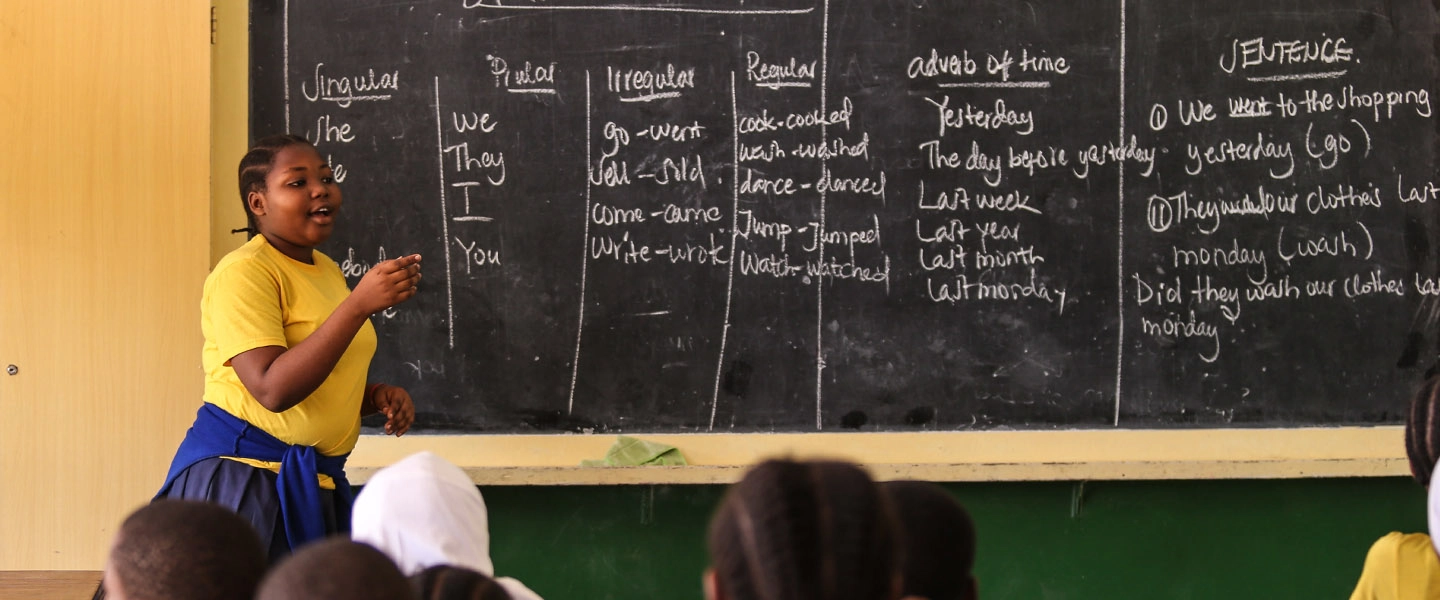 Singular
She
Plular
We
They
I
You
Irregular
go - went
sell - sold
come - came
write - wrok
Regular
cook - cooked
wash - washed
dance - danced
Jump - Jumped
Watch - watched
adverb of time
Yesterday
The day before yesterday
Last week
Last year
Last month
Last monday
SENTENCE.
(i) We went to the shopping
yesterday (go)
(ii) They our clothes Last
monday (wash)
Did they wash our clothes
monday